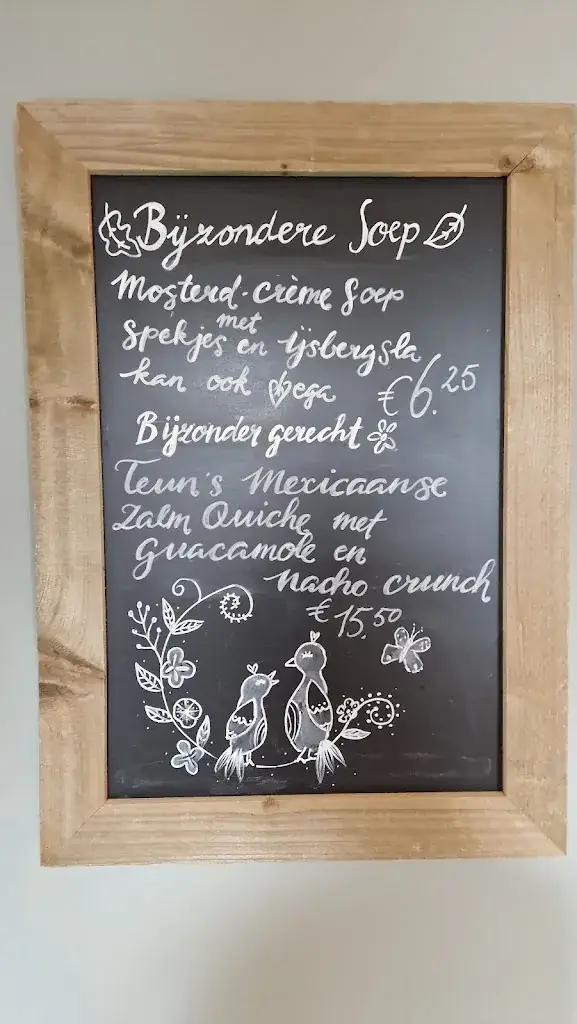 Bijzondere Soep
Mosterd-crème soep
met
spekjes en ijsbergsla
kan ook vega
€6.25
Bijzonder gerecht
Teun's Mexicaanse
Zalm Quiche met
guacamole en
nacho crunch
€15.50